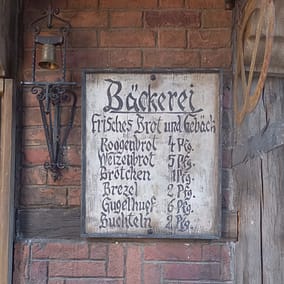 Bäckerei
frisches Brot und Gebäck
Roggenbrot 4 Pfg.
Weizenbrot 5 Pfg.
Brötchen 1 Pfg.
Brezel 2 Pfg.
Gugelhupf 6 Pfg.
Buchteln 2 Pfg.